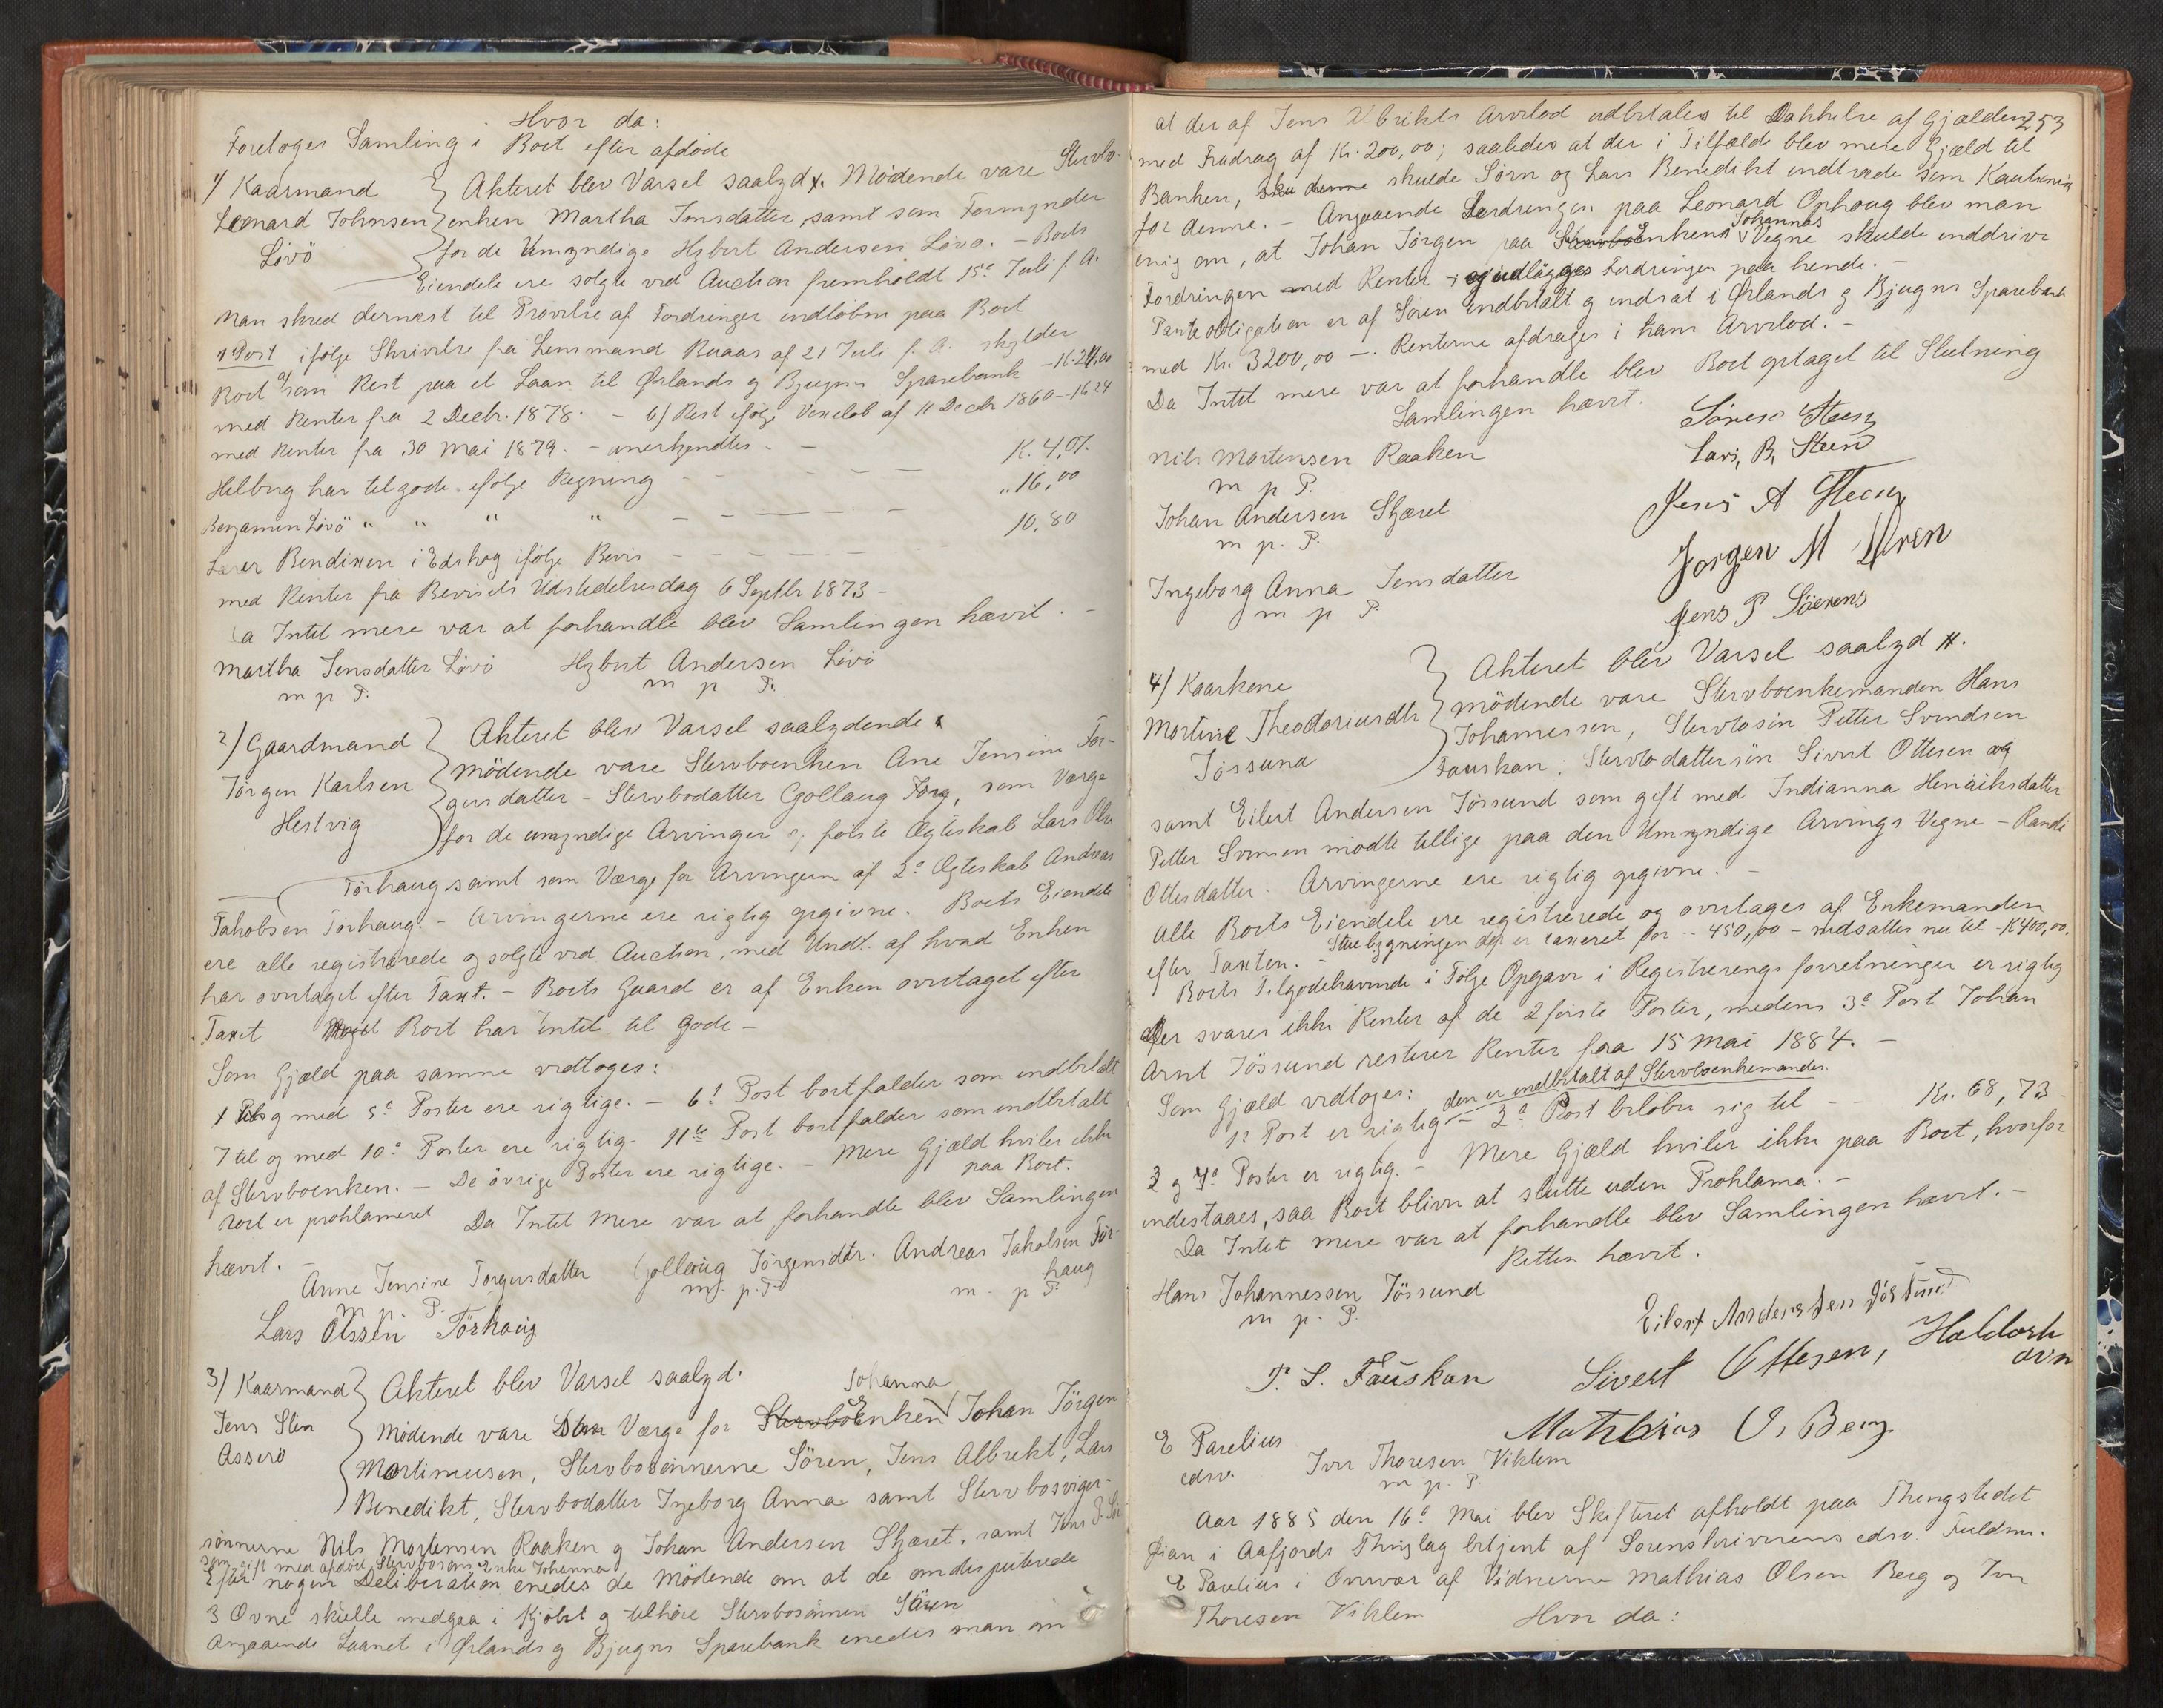 Hvor da:
Foretoges Samling i Boet efter afdøde
1) Kaarmand Akteret blev Varsel saalyd #. Mødende vare Stervbo-
Leonard Johnsen enken Martha Jensdatter, samt som Formynder
Lövö for de Umyndige Hybert Andersen Lövö. – Boets
Eiendele ere solgte ved Auction fremholdt 15de Juli f. A.
Man skred dernæst til Prøvelse af Fordringer indløbne paa Boet
1 Post ifølge Skrivelse fra Lensmand Buaas af 21 Juli f. A. skylder
Boet a) som Rest paa et Laan til Ørlands og Bjugns Sparebank – K. 24,00
med Renter fra 2 Decbr. 1878. – b) Rest ifølge Vexelob af 11 Decbr 1860 – 16 24
med Renter fra 30 Mai 1879. – anerkjendtes. –
Helberg har tilgode ifølge Regning – – – – K. 4,07.
Benjamin Lövö " " " " – – – – – „ 16,00
Lærer Bendixen i Edshog ifølge Bevis – – – – – 10,80
med Renter fra Bevisets Udstedelsesdag 6 Septbr 1873 –
Da Intet mere var at forhandle blev Samlingen hævet. –
Martha Jensdatter Lövö Hybert Andersen Lövö
m p P. m p P.
2) Gaardmand Akteret blev Varsel saalydende
Jörgen Karlsen Mödende vare Stervboenken Ane Jensine Tor-
Hestvig gersdatter – Stervbodatter Gollaug Jørg, som Værge
for de umyndige Arvinger af første Ægteskab Lars Ols
Törhaug samt som Værge for Arvingerne af 2de Ægteskab Andreas
Jakobsen Törhaug. – Arvingerne ere rigtig opgivne. Boets Eiendele
ere alle registrerede og solgte ved Auction, med Undt. af hvad Enken
har overtaget efter Taxt. – Boets Gaard er af Enken overtaget efter
Taxt Boet har Intet til gode –
Som Gjæld paa samme vedtoges:
1 til og med 5te Poster ere rigtige. – 6te Post bortfalder som indbetalt
7 til og med 10de Poster ere rigtig. 11te Post bortfalder som indbetalt
af Stervboenken. – De övrige Poster ere rigtige. – Mere Gjæld hviler ikke
paa Boet.
Boet er proklameret Da Intet Mere var at forhandle blev Samlingen
hævet. –
Anne Jensine Torgersdatter Gollaug Jörgensdtr. Andreas Jakobsen Tör-
haug
m p. P. m. p. P m. p P.
Lars Olssen Törhaug
3) Kaarmand Akteret blev Varsel saalyd.
Johanna
Jens Sten Mødende vare Værge for Stervboenken Johan Jörgen
Asserö Martinusen, Stervbosönnerne Sören, Jens Albrekt, Lars
Benedikt, Stervbodatter Ingeborg Anna samt Stervbosviger-
sönnerne Nils Mortensen Raaken og Johan Andersen Skjæret. samt Jens P. Sör
som gift med afdöde Stervbosöns Enke Johanna
Efter nogen Deliberation enedes de Mödende om at de omdisputerede
3 Ovne skulle medgaa i Kjöbet og tilhøre Stervbosönnen Sören
Angaaende Laanet i Ørlands og Bjugns Sparebank enedes man om
253
at der af Jens Albrikts Arvelod udbetales til Dækkelse af Gjælden
med Fradrag af Kr. 200,00; saaledes at der i Tilfælde blev mere Gjæld til
Banken, skulde Sörn og Lars Benedikt indtræde som Kautionis
for denne. – Angaaende Fordringen paa Leonard Ophoug blev man
Johannas
enig om, at Johan Jörgen paa Stervboenkens Vegne skulde inddrive
Fordringen med Renter – og udlægges Fordringen paa hende. –
Panteobligation er af Sören indbetalt og indsat i Ørlands og Bjugns Sparebank
med Kr. 3200,00 –. Renterne afdrages i hans Arvelod. –
Da Intet mere var at forhandle blev Boet optaget til Slutning
Samlingen hævet.
Sören Steen
Nils Mortensen Raaken Lars, B, Steen
m p P.
Johan Andersen Skjæret Jens A Steen
m p. P.
Jorgen M Ören
Ingeborg Anna Jensdatter
m p P. Jens P Sörens
4) Kaarkone Akteret blev Varsel saalyd #.
Mortine Theodoriusdtr mödende vare Stervboenkemanden Hans
Jössund Johannessen, Stervbosön Petter Svendsen
Fauskan; Stervbodattersön Sivert Ottesen og
samt Eilert Andersen Jössund som gift med Indianna Henriksdatter
Petter Svensen mödte tillige paa den Umyndige Arvings Vegne – Randi
Ottesdatter. Arvingerne ere rigtig opgivne. –
Alle Boets Eiendele ere registrerede og overtages af Enkemanden
efter Taxten. – Stuebygningen der er taxeret for – 450,00 – nedsattes nu til – K 400,00.
Boets Tilgodehavende i Følge Opgave i Registrerings forretningen er rigtig
Der svares ikke Renter af de 2 første Poster, medens 3de Post Johan
Arnt Jössund resterer Renter fra 15 Mai 1884. –
Som Gjæld vedtoges: den er indbetalt af Stervboenkemanden.
1ste Post er rigtig – 2de Post beløber sig til – – Kr. 68,73
3 og 4de Poster er rigtig. – Mere Gjæld hviler ikke paa Boet, hvorfor
indestaaes, saa Boet bliver at slutte uden Proklama. –
Da Intet mere var at forhandle blev Samlingen hævet. –
Retten hævet.
Hans Johannessen Jössund Eilert Andersen Jössund
m p. P.
P. S. Fauskan Sivert Ottesen, Haldorh
avn
E Parelius Mathias O, Berg
edsv. Iver Thoresen Viklem
m p. P.
Aar 1885 den 16de Mai blev Skifteret afholdt paa Thingstedet
Øian i Aafjords Thinglag betjent af Sorenskriverens edsv. Fuldm.
E Parelius i Overvær af Vidnerne Mathias Olsen Berg og Iver
Thoresen Viklem Hvor da: